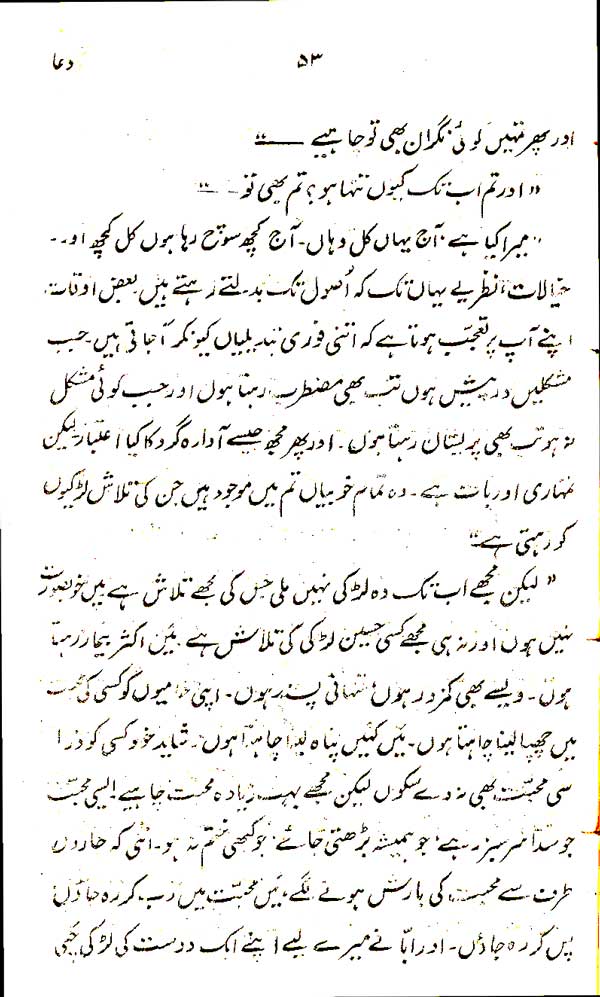 دعا ۵۳
اور پھر تمہیں کوئی نگران بھی تو چاہیے ——"
"اور تم اب تک کیوں تنہا ہو؟ تم بھی تو —"
"میرا کیا ہے، آج یہاں کل وہاں۔ آج کچھ سوچ رہا ہوں کل کچھ اور۔
خیالات، نظریے یہاں تک کہ اُصول تک بدلتے رہتے ہیں بعض اوقات
اپنے آپ پر تعجّب ہوتا ہے کہ اتنی فوری تبدیلیاں کیونکر آ جاتی ہیں۔ جب
مشکلیں درپیش ہوں تب بھی مضطرب رہتا ہوں اور جب کوئی مشکل
نہ ہو تب بھی پریشان رہتا ہوں۔ اور پھر مجھ جیسے آوارہ گرد کا کیا اعتبار لیکن
تمہاری اور بات ہے۔ وہ تمام خوبیاں تم میں موجود ہیں جن کی تلاش لڑکیوں
کو رہتی ہے"
"لیکن مجھے اب تک وہ لڑکی نہیں ملی جس کی مجھے تلاش ہے میں خوبصورت
نہیں ہوں اور نہ ہی مجھے کسی حسین لڑکی کی تلاش ہے۔ میں اکثر بیمار رہتا
ہوں۔ ویسے بھی کمزور ہوں، تنہائی پسند ہوں۔ اپنی خامیوں کو کسی کی محبت
میں چھپا لینا چاہتا ہوں۔ میں کہیں پناہ لینا چاہتا ہوں۔ شاید خود کسی کو ذرا
سی محبّت بھی نہ دے سکوں لیکن مجھے بہت زیادہ محبت چاہیے ایسی محبت
جو سدا سرسبز رہے، جو ہمیشہ بڑھتی جائے، جو کبھی ختم نہ ہو۔ اتنی کہ چاروں
طرف سے محبت کی بارش ہونے لگے، میں محبّت میں دب کر رہ جاؤں
پس کر رہ جاؤں۔ اور ابّا نے میرے لیے اپنے ایک دوست کی لڑکی چُنی